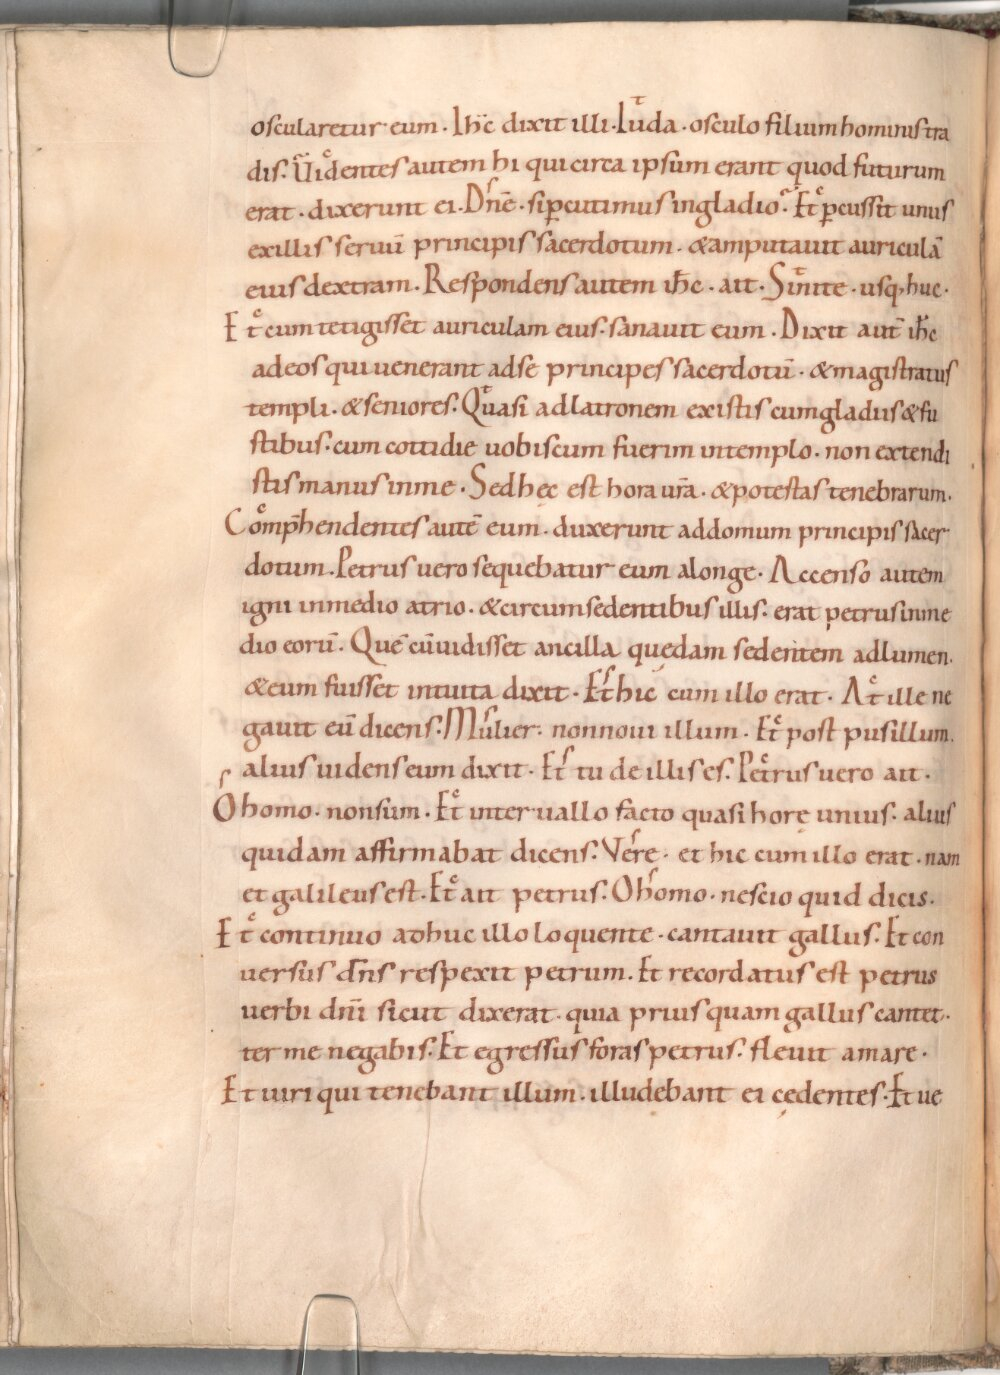 oscularetur eum · Ihc̄ dixit illi · Iuda · osculo filium hominis tra
dis · Uidentes autem hi qui circa ipsum erant quod futurum
erat · dixerunt ei · Dn̄e · si ꝑcutimus in gladio? Et ꝑcussit unus
ex illis seruū principis sacerdotum · & amputauit auriculā
eius dextram · Respondens autem ih̄c · ait · Sinite · usq; huc ·
Et cum tetigisset auriculam eius · sanauit eum · Dixit aut̄ ih̄c
ad eos qui uenerant ad se principes sacerdotū · & magistratus
templi · & seniores · Quasi ad latronem existis cum gladiis & fu
stibus · cum cottidie uobiscum fuerim in templo · non extendi
stis manus in me · Sed hęc est hora ur̄a · & potestas tenebrarum ·
Comp̄hendentes autē eum · duxerunt ad domum principis sacer
dotum · Petrus uero sequebatur eum a longe · Accenso autem
igni in medio atrio · & circumsedentibus illis · erat petrus in me
dio eorū · Quē cū uidisset ancilla quędam sedentem ad lumen ·
& eum fuisset intuita dixit · Et hic cum illo erat · At ille ne
gauit eū dicens · Mulier · non noui illum · Et post pusillum ·
alius uidens eum dixit · Et tu de illis es · Petrus uero ait ·
O homo · non sum · Et interuallo facto quasi horę unius · alius
quidam affirmabat dicens · Vere · et hic cum illo erat · nam
et galileus est · Et ait petrus · O homo · nescio quid dicis ·
Et continuo adhuc illo loquente · cantauit gallus · Et con
uersus dn̄s respexit petrum · Et recordatus est petrus
uerbi dn̄i sicut dixerat · quia prius quam gallus cantet ·
ter me negabis · Et egressus foras petrus · fleuit amare ·
Et uiri qui tenebant illum · illudebant ei cędentes · Et ue